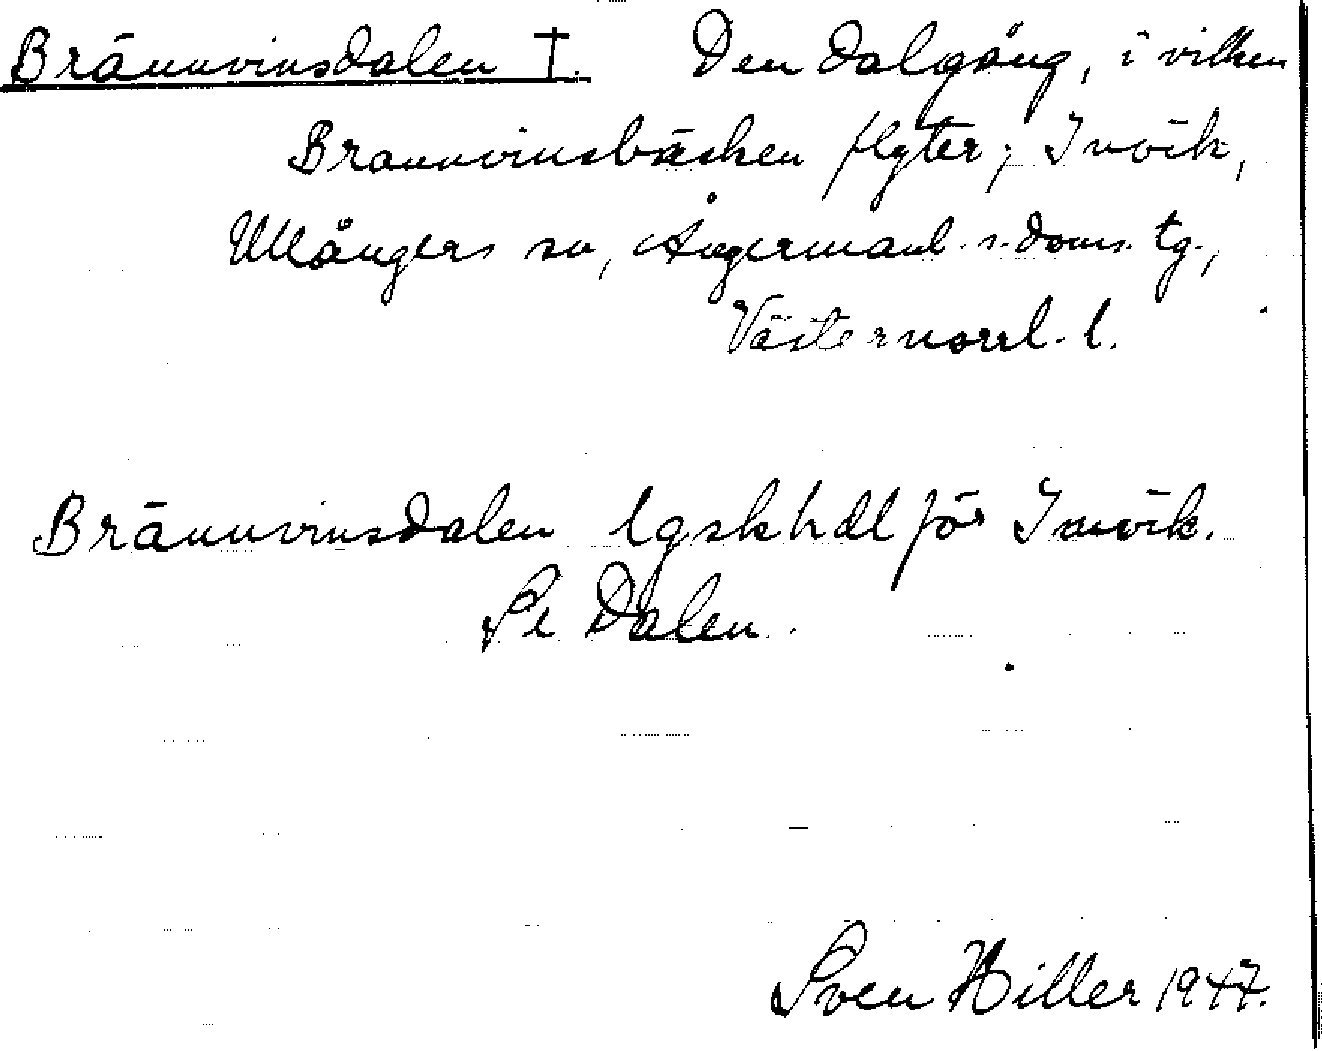 Brännvinsdalen †. Den dalgång, i vilken
Brännvinsbäcken flyter; Invik,
Ullångers sn, Ångermanl. s. doms. tg.,
Västernorrl. l.
Brännvinsdalen lgskhdl för Invik.
Se Dalen.
Sven Hiller 1947.